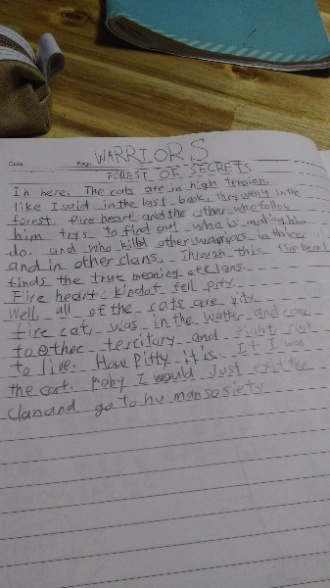 Date: Page: WARRIORS
FOREST OF SECRETS
In here. The cats are in high tension.
like I said in the last book. They went in the
forest. Fire heart and the other who follow
him trys to find out who is making him
do. and who killed other warriors in three
and in other clans. Through this, fire heart
finds the true meaning of clans.
Fire heart kindof fell pity.
Well, all of the cats are pity
fire cat, was in the watter and come
to other territory and fight just
to live. How Pitty it is. If I was
the cart. Paby I would just exit the
clan and go to human sosiety